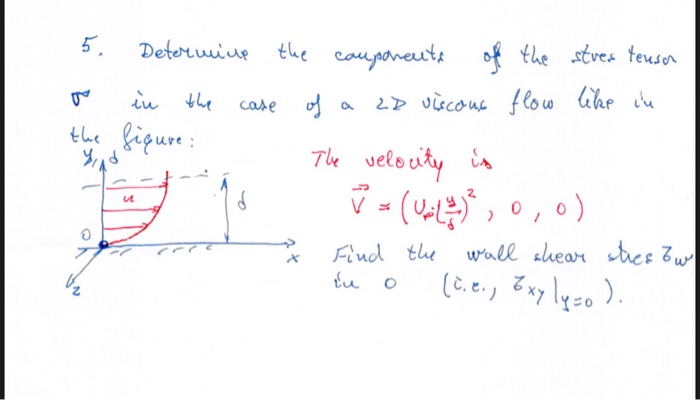 5. Determine the components of the stres tensor
σ in the case of a 2D viscous flow like in
the figure:
y, δ
The velocity is
u
δ
V⃗ = (U∞(y/δ)², 0, 0)
0
x
Find the wall shear stres τw
z
in 0 (i.e., τxy|y=0).